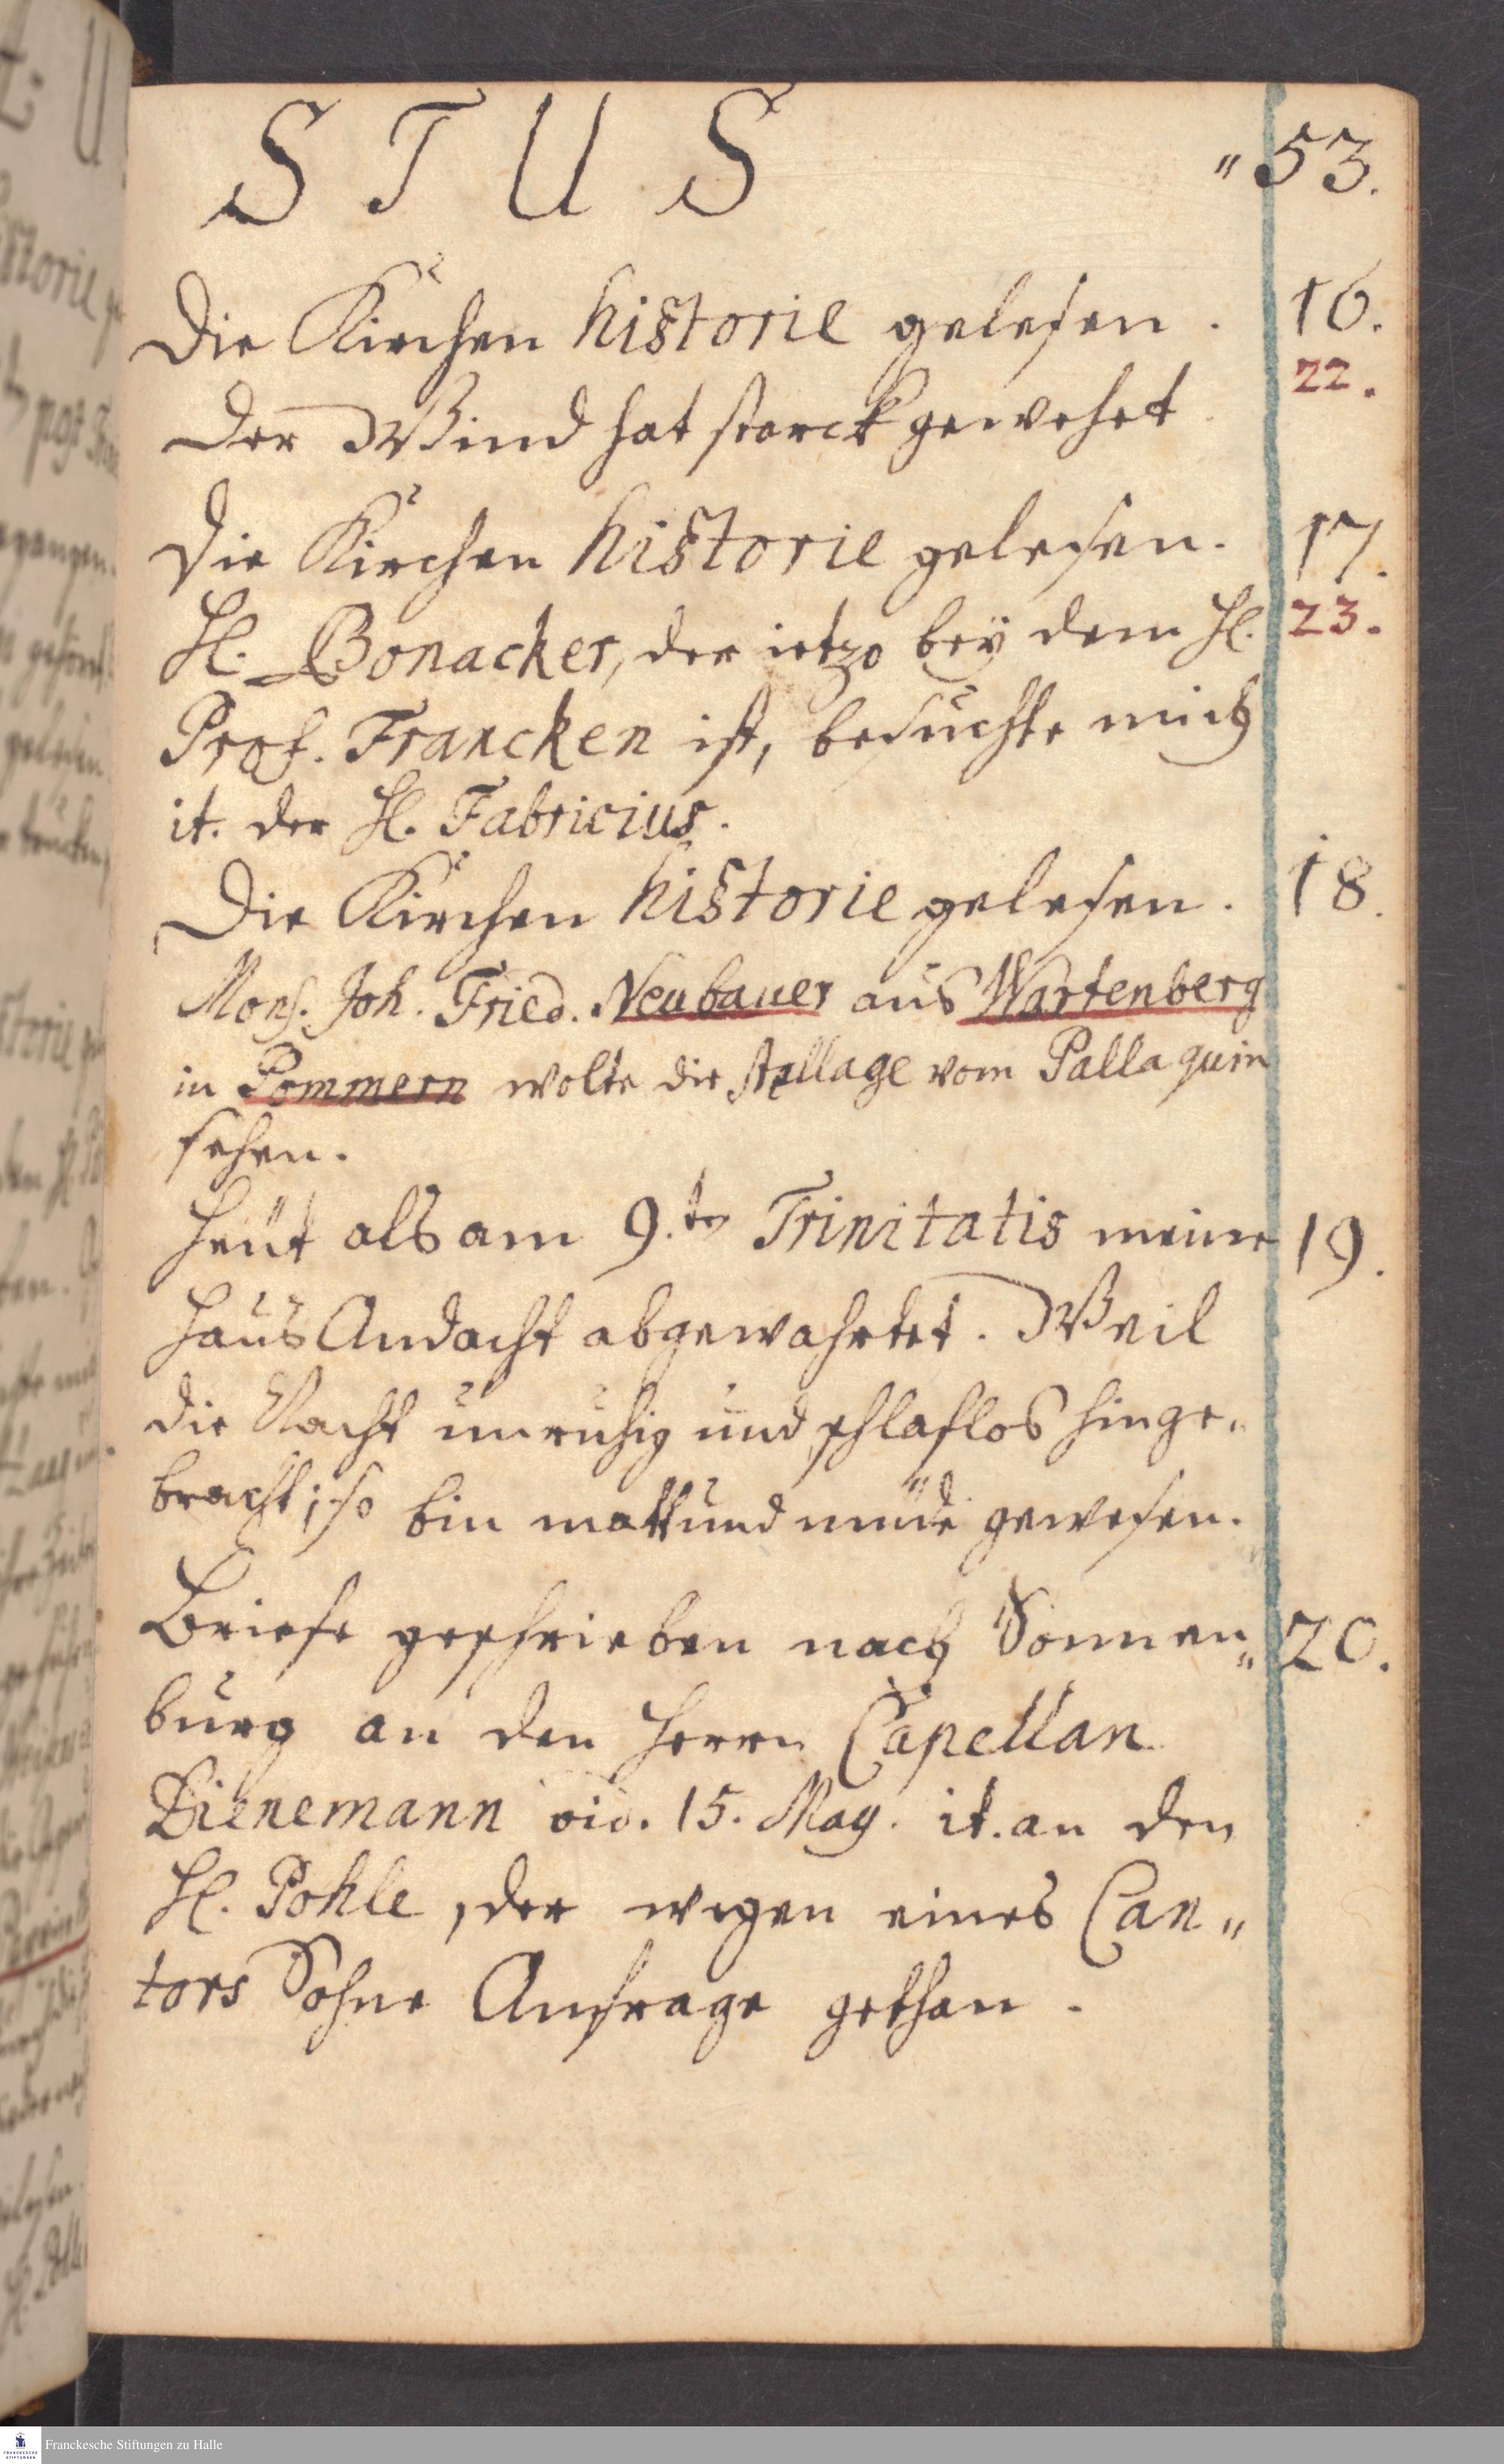 S T U S „ 53.
Die Kirchen historie gelesen. 16.
22.
Der Wind hat starck gewehet.
Die Kirchen historie gelesen. 17.
H. Bonacker, der ietzo beÿ dem H. 23.
Prof. Francken ist, besuchte mich
it. der H. Fabricius.
Die Kirchen historie gelesen. 18.
Mons. Joh. Fried. Neubauer aus Wartenberg
in Pommern wolte die stellage vom Pallaquin
sehen.
Heüt als am 9.ten Trinitatis meine 19.
Haus Andacht abgewahrtet. Weil
die Nacht unruhig und schlaflos hinge„
bracht; so bin matt und müde gewesen.
Briefe geschrieben nach Sonnen„ 20.
burg an den Herrn Capellan
Dienemann vid. 15. May. it. an den
H. Pohle, der wegen eines Can„
tors Sohne Anfrage gethan.
Franckesche Stiftungen zu Halle